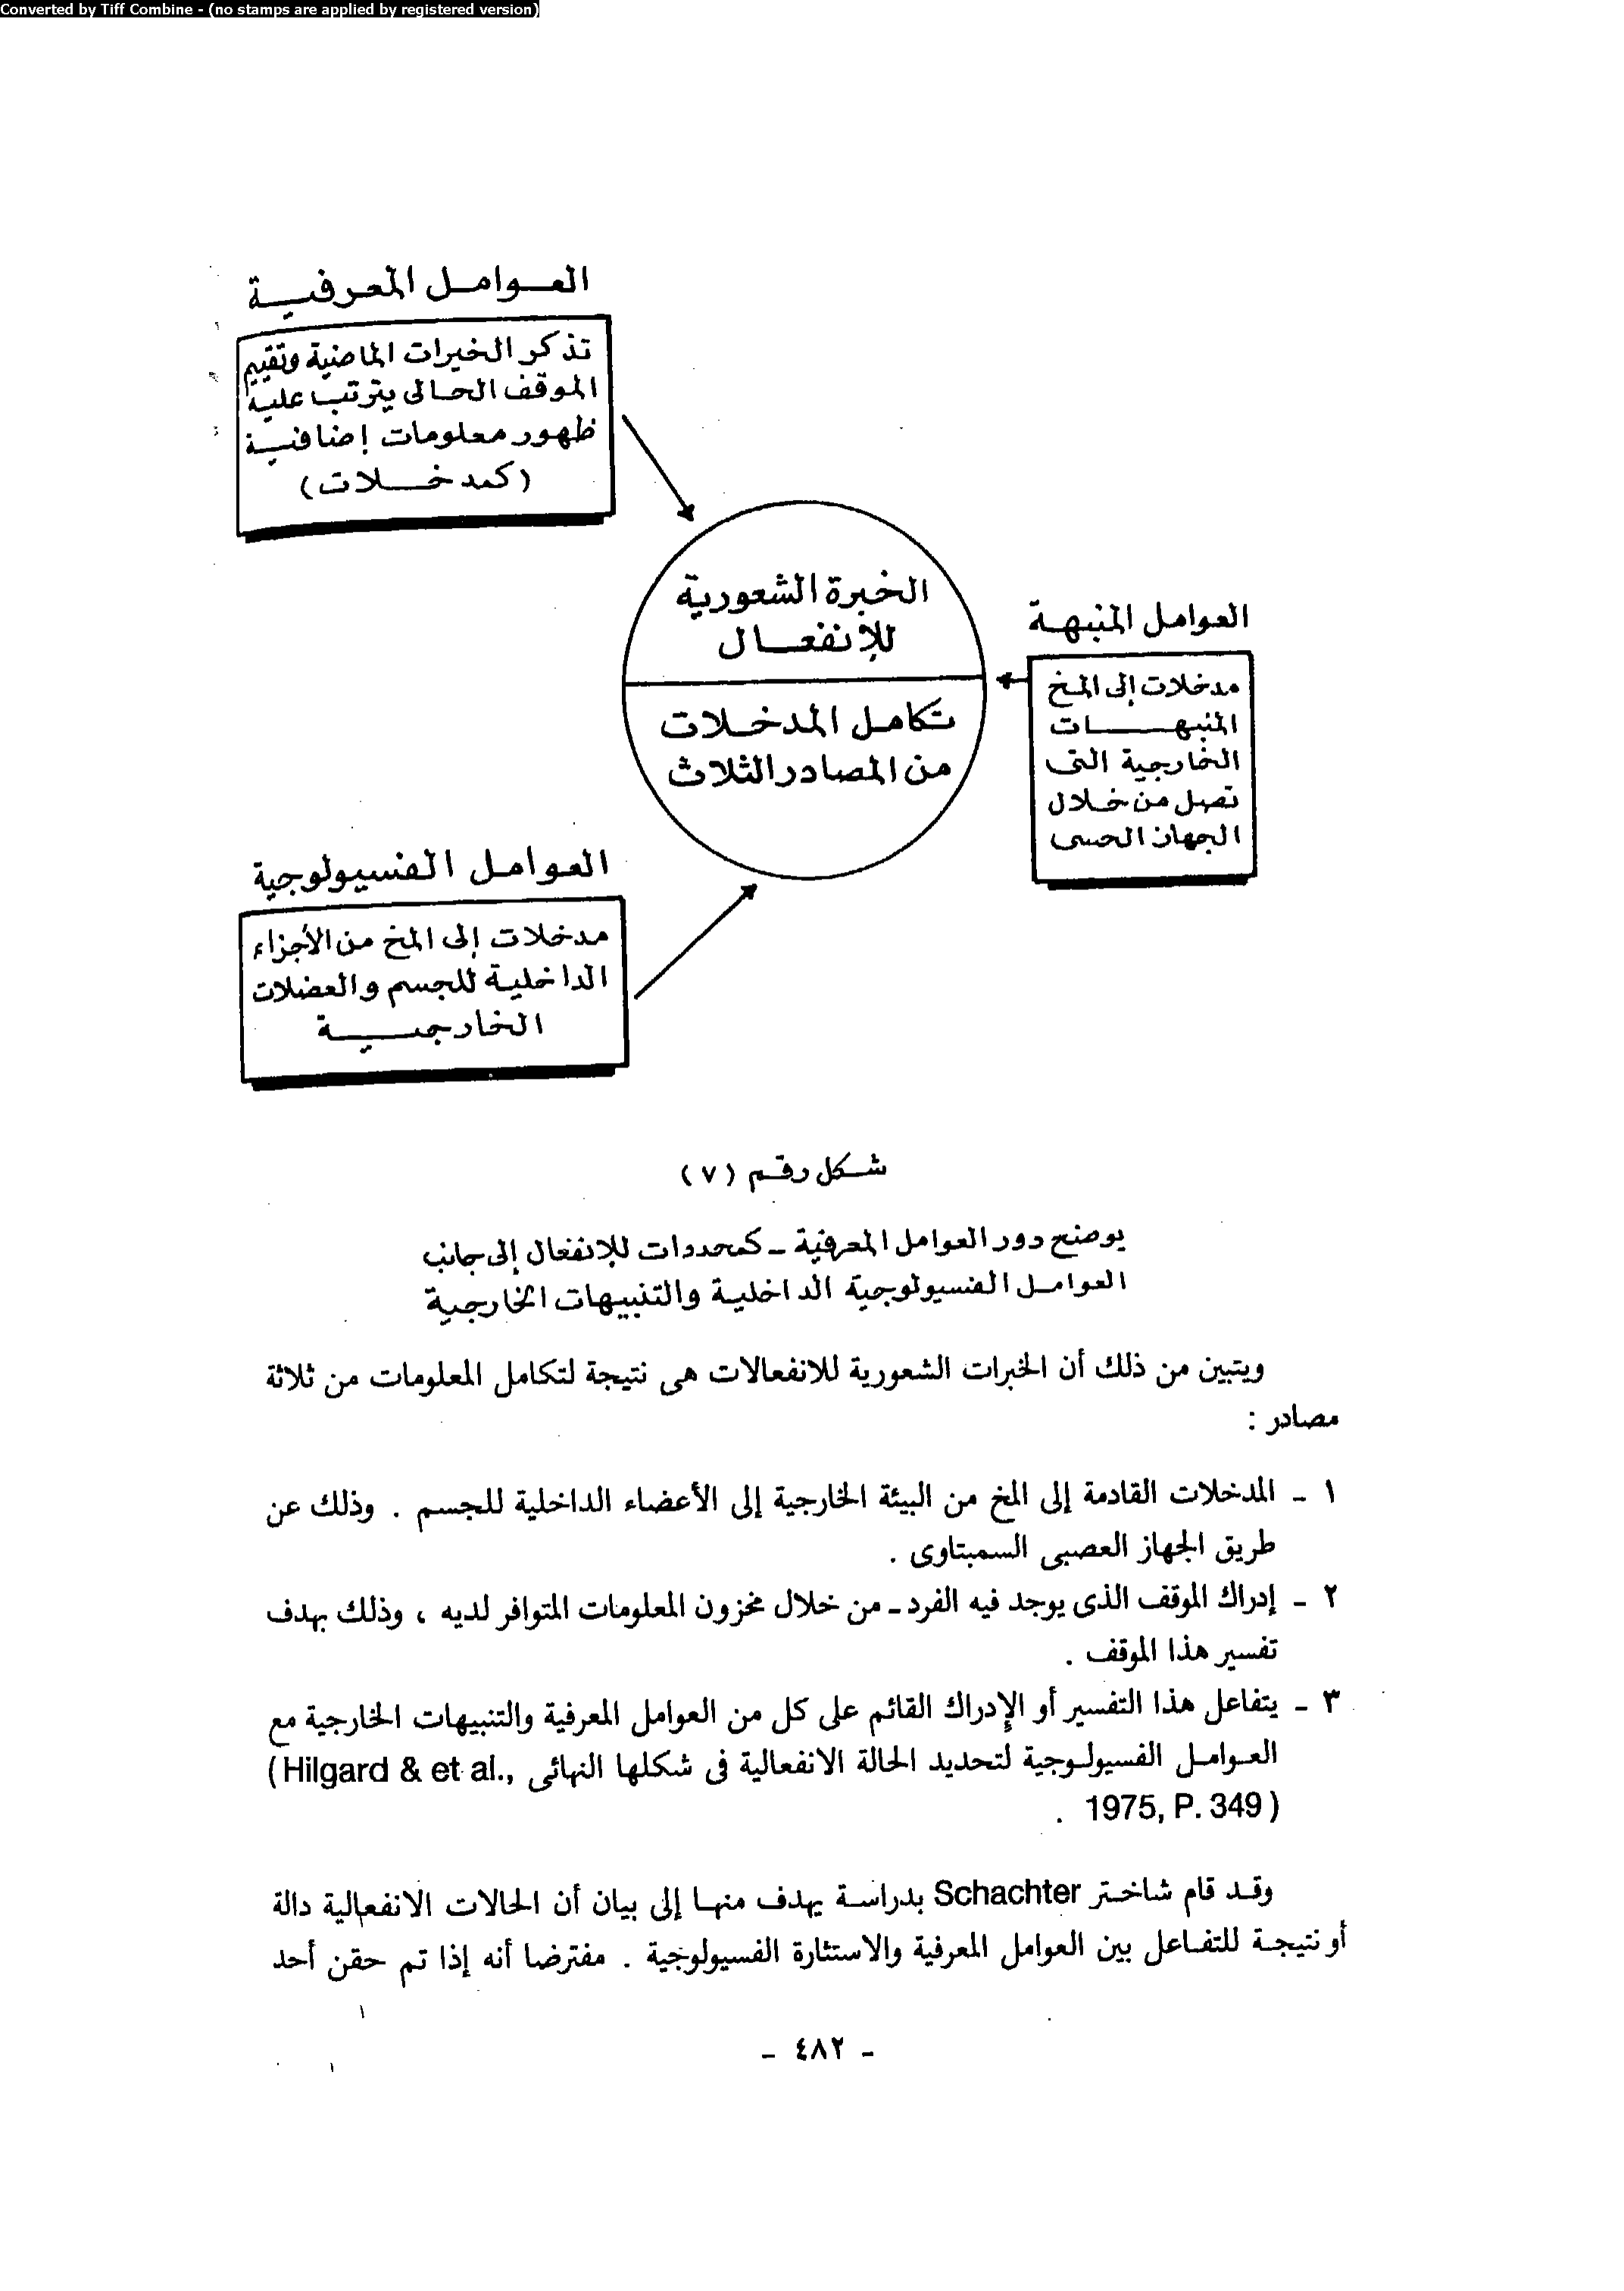 Converted by Tiff Combine - (no stamps are applied by registered version)
العوامل المعرفية
تذكر الخبرات الماضية وتقييم
الموقف الحالى يترتب عليه
ظهور معلومات إضافية
(كمدخلات)
الخبرة الشعورية
للإنفعال
تكامل المدخلات
من المصادر الثلاث
العوامل المنبهة
مدخلات إلى المخ
المنبهات
الخارجية التى
تصل من خلال
الجهاز الحسى
العوامل الفسيولوجية
مدخلات إلى المخ من الأجزاء
الداخلية للجسم والعضلات
الخارجية
شكل رقم (٧)
يوضح دور العوامل المعرفية - كمحددات للإنفعال إلى جانب
العوامل الفسيولوجية الداخلية والتنبيهات الخارجية
ويتبين من ذلك أن الخبرات الشعورية للانفعالات هى نتيجة لتكامل المعلومات من ثلاثة
مصادر :
١ - المدخلات القادمة إلى المخ من البيئة الخارجية إلى الأعضاء الداخلية للجسم . وذلك عن
طريق الجهاز العصبى السمبتاوى .
٢ - إدراك الموقف الذى يوجد فيه الفرد - من خلال مخزون المعلومات المتوافر لديه ، وذلك بهدف
تفسير هذا الموقف .
٣ - يتفاعل هذا التفسير أو الإدراك القائم على كل من العوامل المعرفية والتنبيهات الخارجية مع
العوامل الفسيولوجية لتحديد الحالة الانفعالية فى شكلها النهائى (Hilgard & et al.,
1975, P. 349) .
وقد قام شاختر Schachter بدراسة يهدف منها إلى بيان أن الحالات الانفعالية دالة
أو نتيجة للتفاعل بين العوامل المعرفية والاستثارة الفسيولوجية . مفترضا أنه إذا تم حقن أحد
- ٤٨٢ -